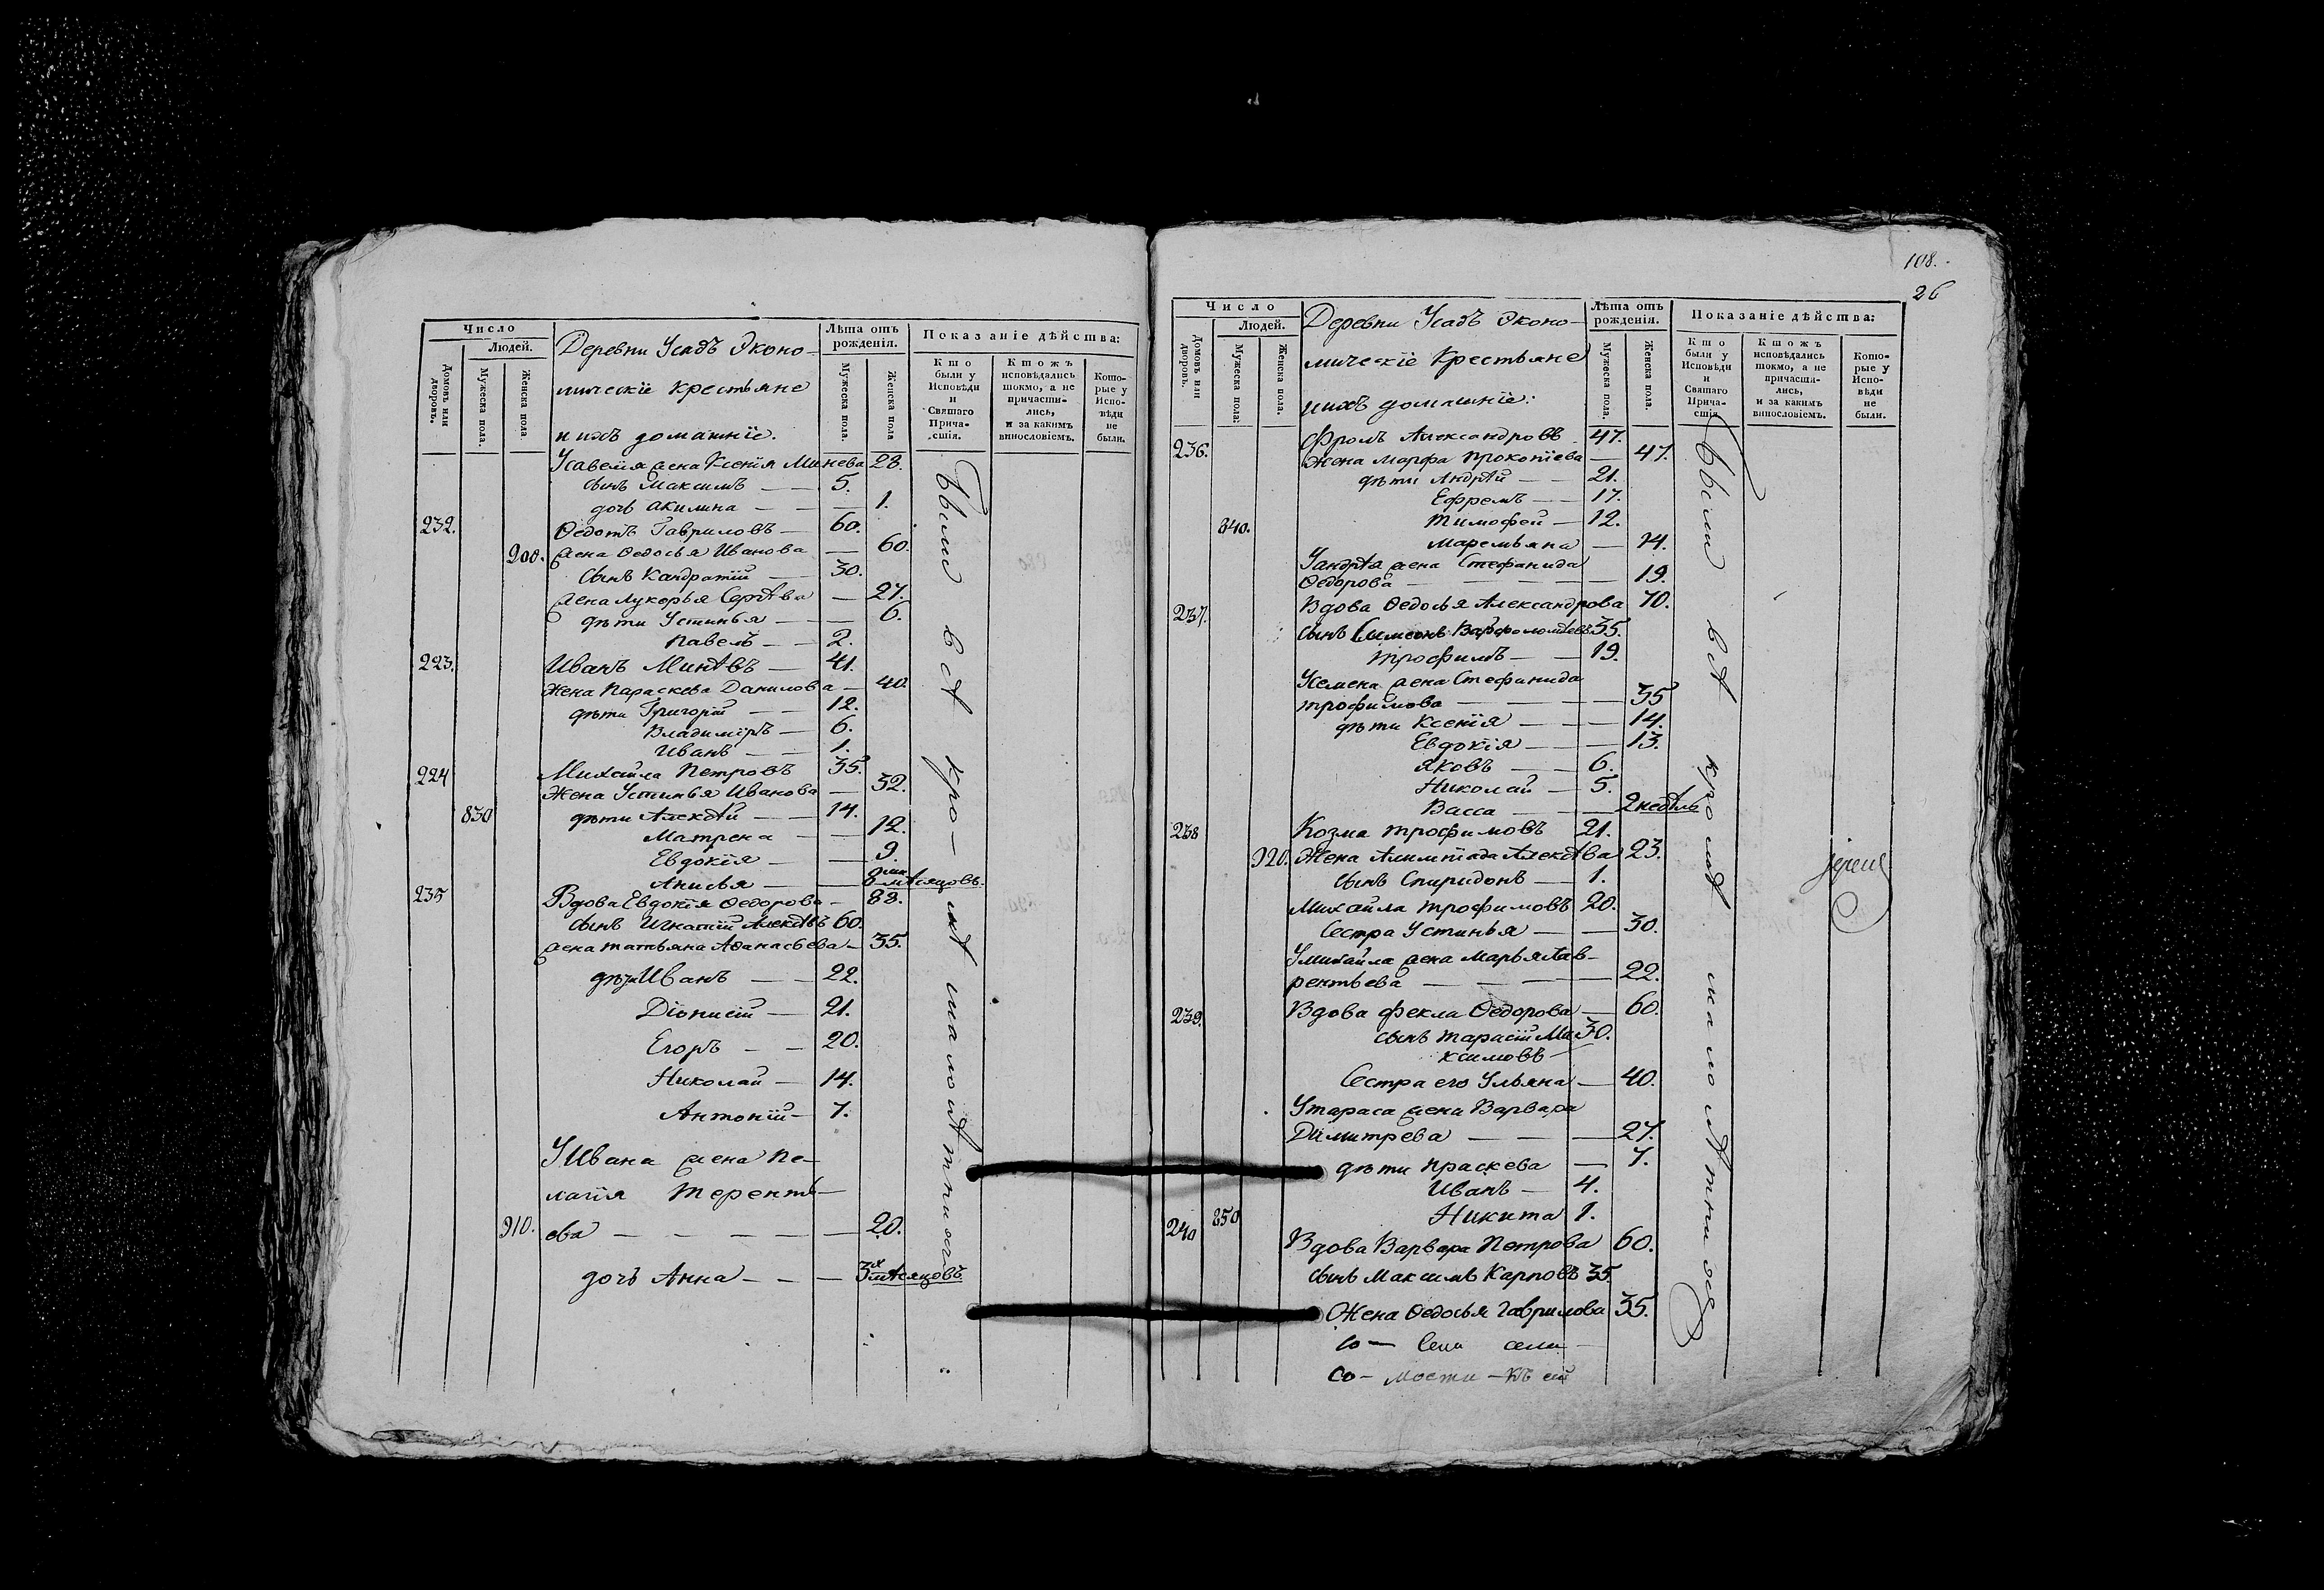 Число
Людей.
Домовъ или дворовъ.
Мужеска пола.
Женска пола
Деревни Усадъ Эконо-
мическїе крестьяне
и ихъ домашнїе.
Лѣта отъ рожденія.
Мужеска пола.
Женска пола
Показаніе дѣйства:
Кто были у Исповѣди и Святаго Прича-стія.
Ктожъ исповѣдались токмо, а не причасти-лись, и за какимъ винословіемъ.
Кото-рые у Испо-вѣди не были.
Усавелїя жена Ксенїя Минева 28.
сынъ Максимъ — 5.
дочь Акилина — 1.
232. Ѳедотъ Гавриловъ — 60.
900. жена Ѳедосья Иванова — 60.
сынъ Кандратїй — 30.
жена Лукерья Сергѣва — 27.
дѣти Устинья — 6.
Павелъ — 2.
223. Иванъ Минѣвъ — 41.
Жена Параскева Данилова — 40.
дѣти Григорїй — 12.
Владимїръ — 6.
Иванъ — 1.
224 Михайла Петровъ 35.
Жена Устинья Иванова — 32.
830 дѣти Алексѣй — 14.
Матрена — 12.
Евдокїя — 9.
Анисья — 8 мѣсяцовъ.
235 Вдова Евдокїя Ѳедорова — 88.
сынъ Игнатїй Алексѣвъ 60.
жена татьяна Аѳанасьева — 35.
дѣти Иванъ — 22.
Дїонисїй — 21.
Егоръ — 20.
Николай — 14.
Антонїй — 7.
У Ивана жена Пе-
лагїя Теренть-
910. ева — 20.
дочь Анна — 3х мѣсяцовъ.
Были всѣ кро-мѣ малолѣтнихъ
108.
26
Число
Людей.
Домовъ или дворовъ.
Мужеска пола.
Женска пола.
Деревни Усадъ Эконо-
мическїе Крестьяне
ихъ домашнїе:
Лѣта отъ рожденія.
Мужеска пола.
Женска пола.
Показаніе дѣйства:
Кто были у Исповѣди и Святаго Прича-стія
Ктожъ исповѣдались токмо, а не причасти-лись, и за какимъ винословіемъ.
Кото-рые у Испо-вѣди не были.
236. Фролъ Александровъ 47.
Жена Марфа Прокопїева — 47.
дѣти Андрѣй — 21.
Ефремъ — 17.
840. Тимофей — 12.
Маремьяна — 14.
Уандрѣя жена Стефанида
Ѳедорова — 19.
237. Вдова Ѳедосья Александрова 70.
сынъ Симеонъ Варфоломѣевъ 35.
Трофимъ — 19.
Усемена жена Стефанида
трофимова — 35
дѣти Ксенїя — 14.
Евдокїя — 13.
Яковъ — 6.
Николай — 5.
Васса — 2 недѣль
238 Козма трофимовъ 21.
920. Жена Алимпїада Алексѣва 23.
сынъ Спиридонъ — 1.
Михайла трофимовъ 20.
Сестра Устинья — 30.
Умихайла жена Марья Лав-
рентьева — 22.
239. Вдова Фекла Ѳедорова — 60.
сынъ тарасїй Ма- 30.
ксимовъ
Сестра его Ульяна — 40.
Утараса жена Варвара
Димитрева — 27.
дѣти Праскева — 7.
Иванъ — 4.
850 Никита 1.
240 Вдова Варвара Петрова 60.
сынъ Максимъ Карповъ 35.
Жена Ѳедосья Гаврилова 35.
Были всѣ кромѣ малолѣтнихъ
Іерей